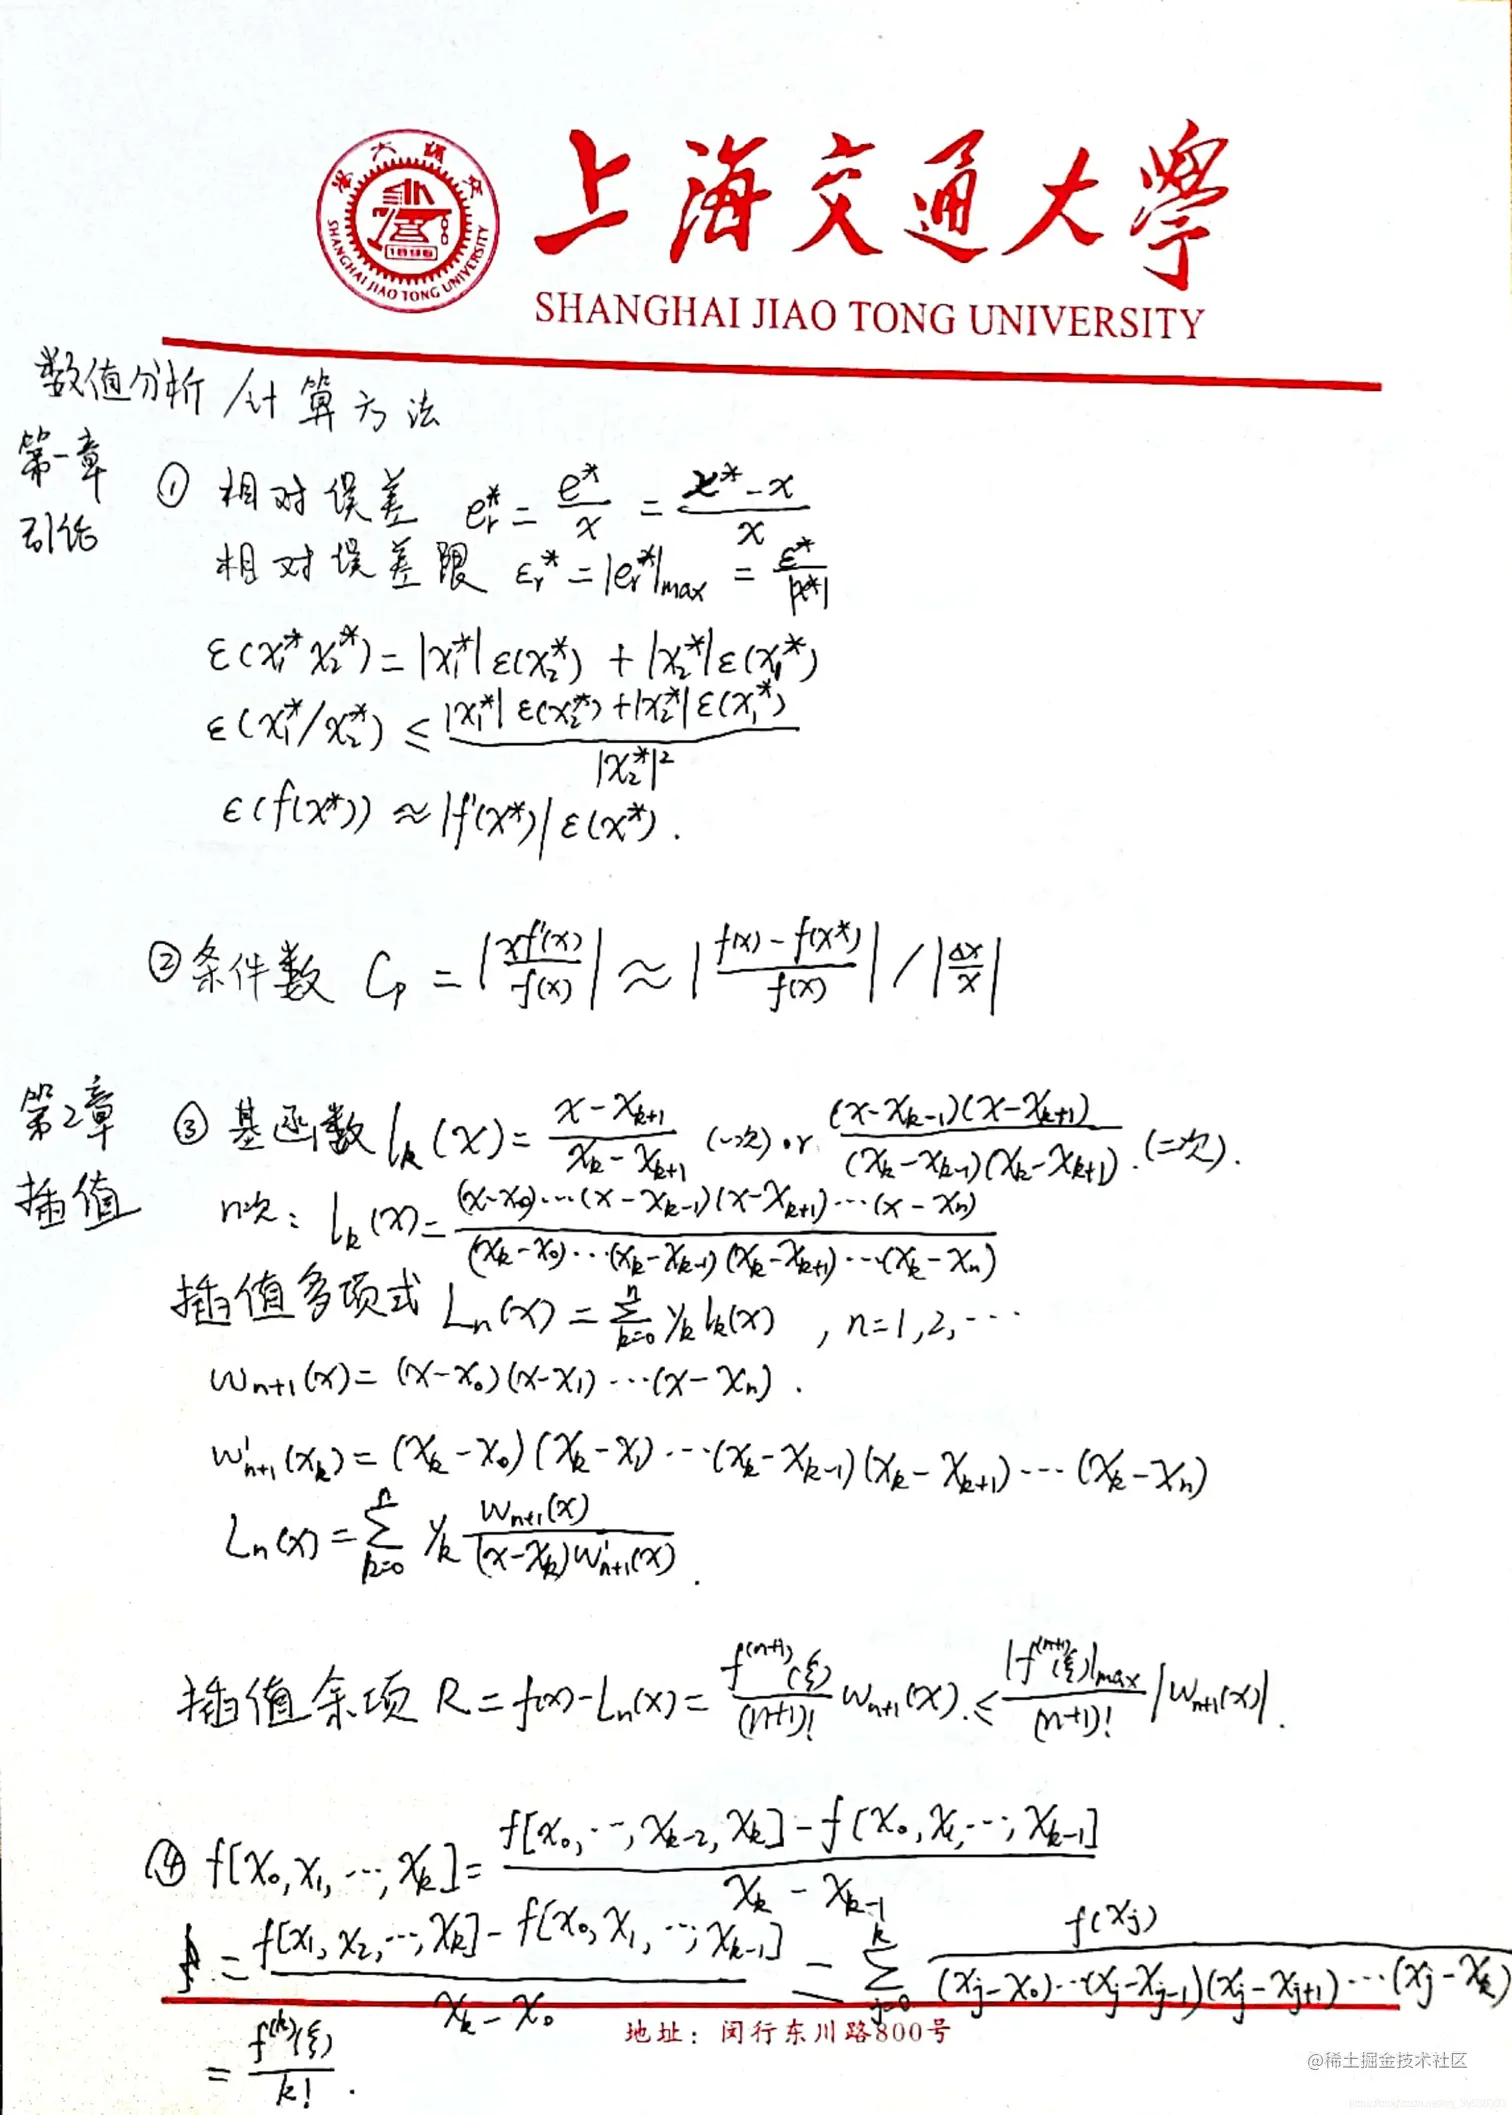 上海交通大學
SHANGHAI JIAO TONG UNIVERSITY
1896
SHANGHAI JIAO TONG UNIVERSITY
数值分析/计算方法
第一章
引论
① 相对误差 e_r^* = e^*/x = (x^*-x)/x
相对误差限 ε_r^* = |e_r^*|_max = ε^*/|x^*|
ε(x_1^* x_2^*) = |x_1^*| ε(x_2^*) + |x_2^*| ε(x_1^*)
ε(x_1^*/x_2^*) ≤ (|x_1^*| ε(x_2^*) + |x_2^*| ε(x_1^*))/|x_2^*|^2
ε(f(x^*)) ≈ |f'(x^*)| ε(x^*).
② 条件数 C_p = |xf'(x)/f(x)| ≈ |(f(x)-f(x^*))/f(x)| / |Δx/x|
第2章
插值
③ 基函数 l_k(x) = (x-x_{k+1})/(x_k-x_{k+1}) (一次) or ((x-x_{k-1})(x-x_{k+1}))/((x_k-x_{k-1})(x_k-x_{k+1})). (二次).
n次: l_k(x) = ((x-x_0)···(x-x_{k-1})(x-x_{k+1})···(x-x_n))/((x_k-x_0)···(x_k-x_{k-1})(x_k-x_{k+1})···(x_k-x_n))
插值多项式 L_n(x) = ∑_{k=0}^{n} y_k l_k(x) , n=1,2,···
w_{n+1}(x) = (x-x_0)(x-x_1)···(x-x_n).
w'_{n+1}(x_k) = (x_k-x_0)(x_k-x_1)···(x_k-x_{k-1})(x_k-x_{k+1})···(x_k-x_n)
L_n(x) = ∑_{k=0}^{n} y_k w_{n+1}(x)/((x-x_k)w'_{n+1}(x)).
插值余项 R = f(x)-L_n(x) = f^{(n+1)}(ξ)/(n+1)! w_{n+1}(x). ≤ |f^{(n+1)}(ξ)|_max/(n+1)! |w_{n+1}(x)|.
④ f[x_0,x_1,···,x_k] = (f[x_0,···,x_{k-2},x_k]-f[x_0,x_1,···,x_{k-1}])/(x_k-x_{k-1})
= (f[x_1,x_2,···,x_k]-f[x_0,x_1,···,x_{k-1}])/(x_k-x_0) = ∑_{j=0}^{k} f(x_j)/((x_j-x_0)···(x_j-x_{j-1})(x_j-x_{j+1})···(x_j-x_k))
= f^{(k)}(ξ)/k!.
地址：闵行东川路800号
@稀土掘金技术社区